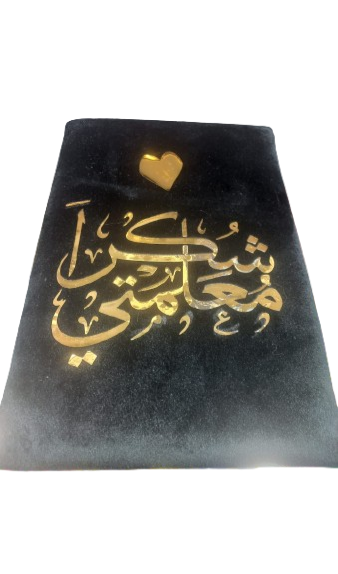 شُكراً
مُعلمتي